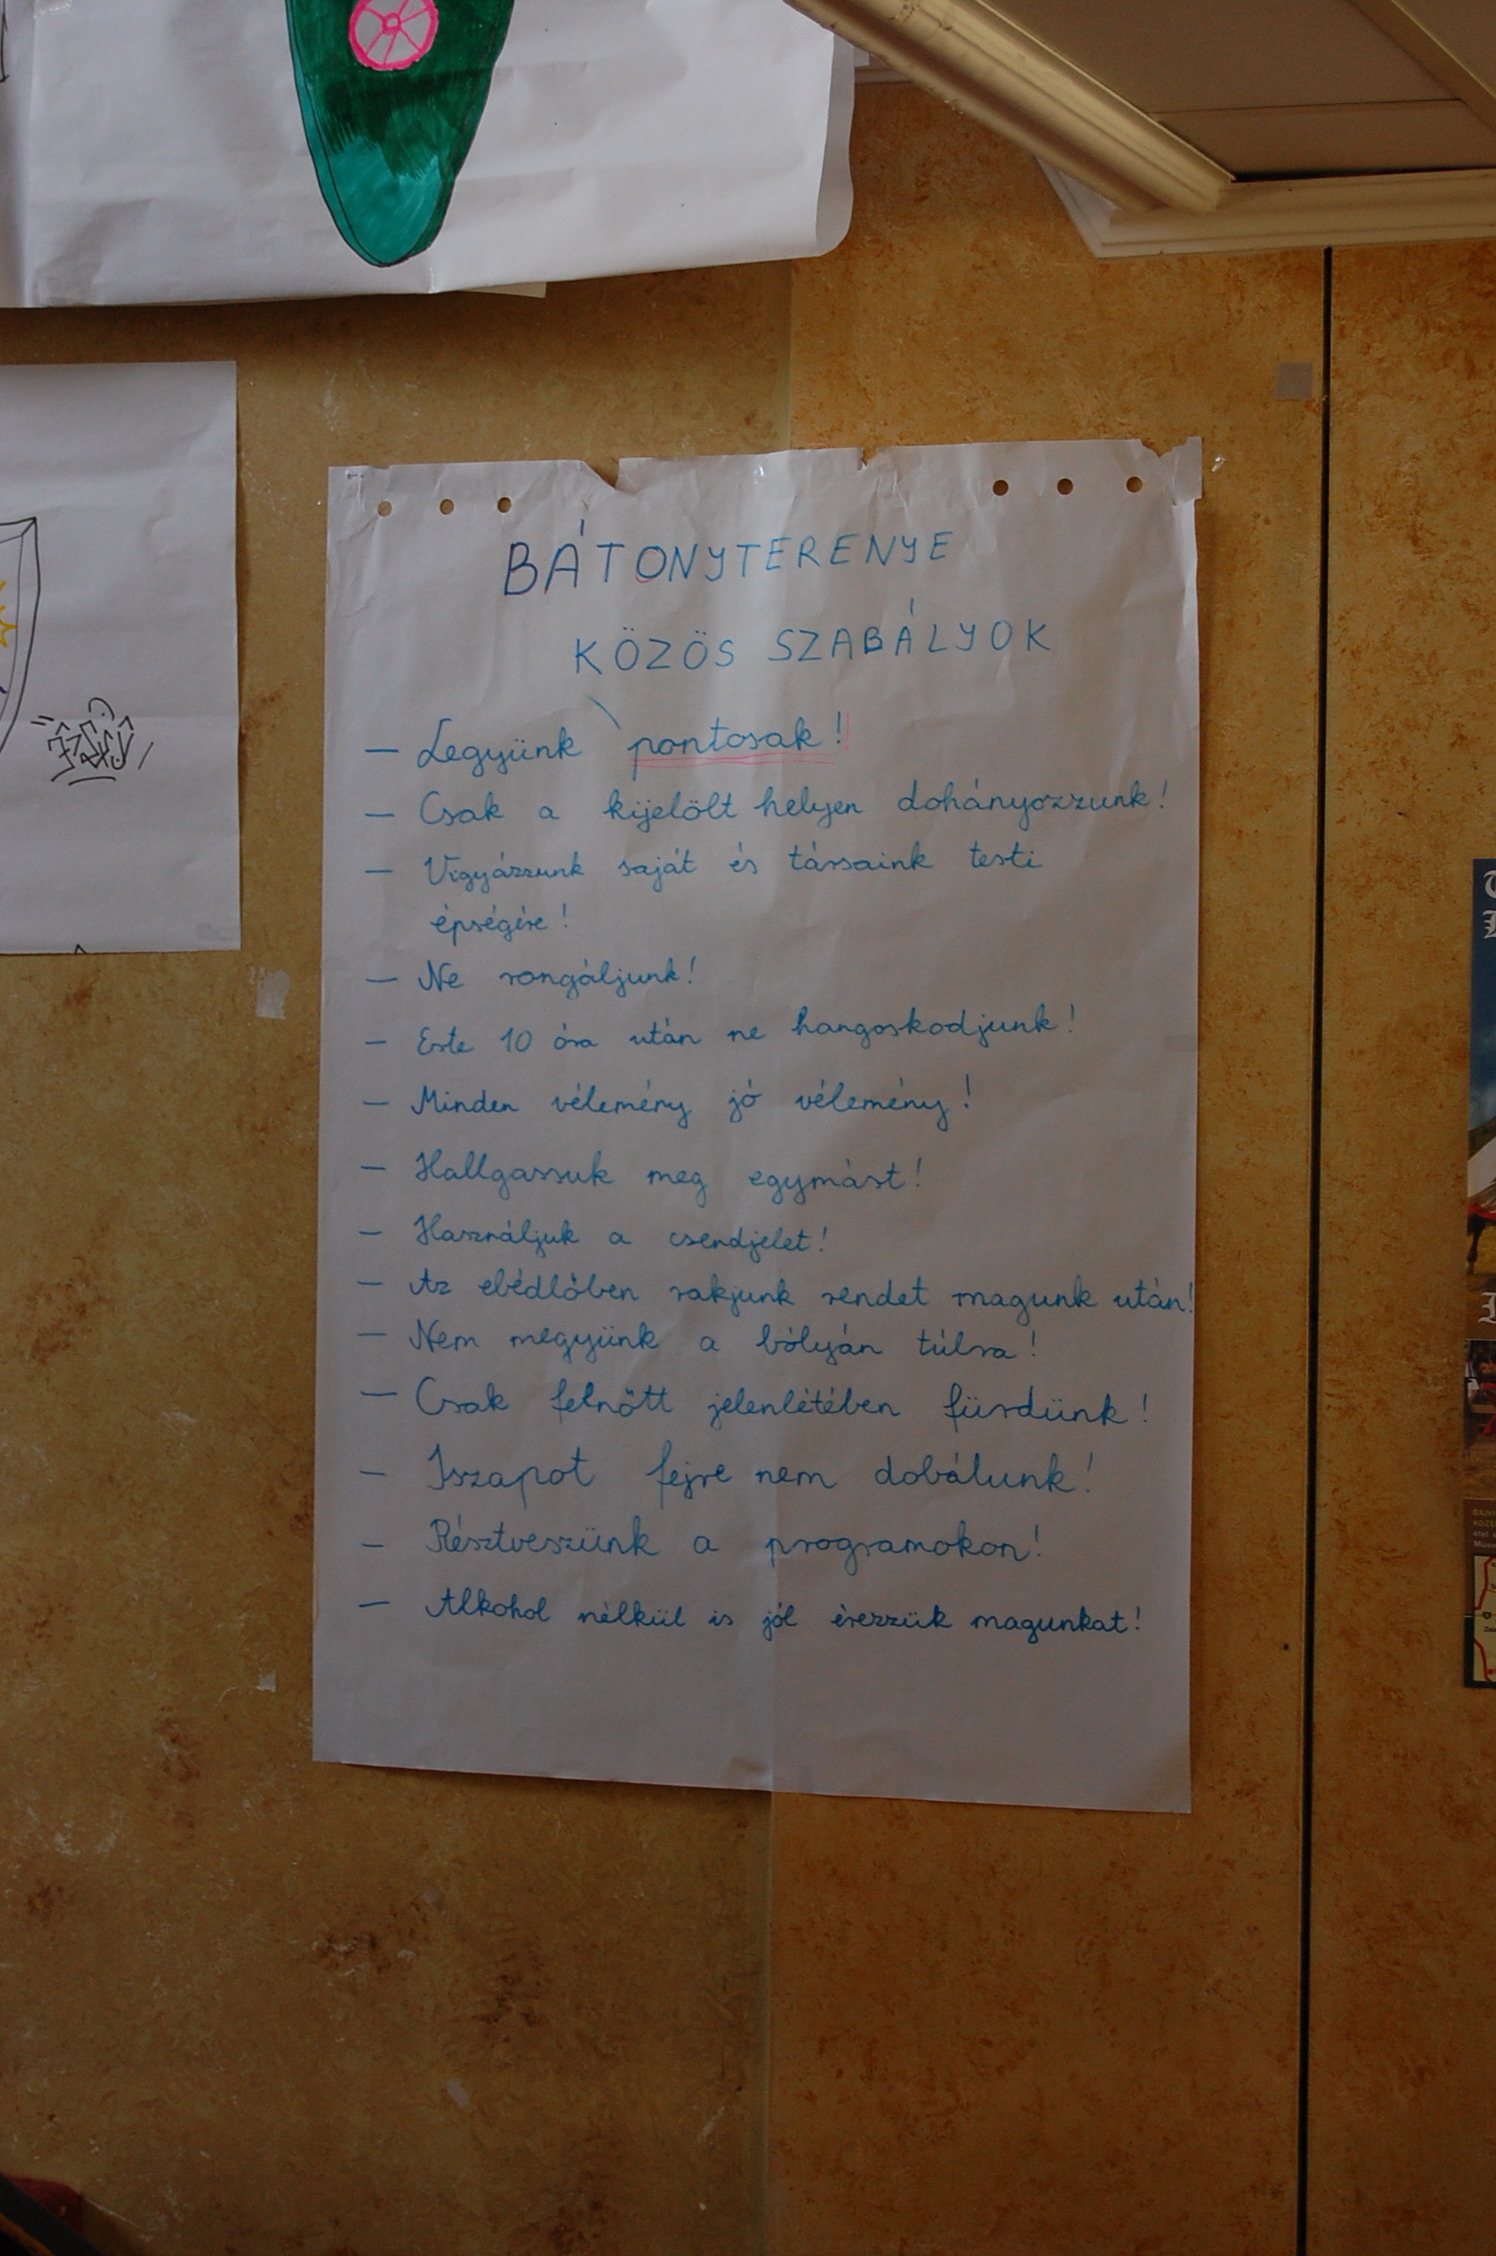 BÁTONYTERENYE
KÖZÖS SZABÁLYOK
— Legyünk pontosak!!
— Csak a kijelölt helyen dohányozzunk!
— Vigyázzunk saját és társaink testi
épségére!
— Ne rongáljunk!
— Este 10 óra után ne hangoskodjunk!
— Minden vélemény jó vélemény!
— Hallgassuk meg egymást!
— Használjuk a csendjelet!
— Az ebédlőben rakjunk rendet magunk után!
— Nem megyünk a bólyán túlra!
— Csak felnőtt jelenlétében fürdünk!
— Iszapot fejre nem dobálunk!
— Résztveszünk a programokon!
— Alkohol nélkül is jól érezzük magunkat!